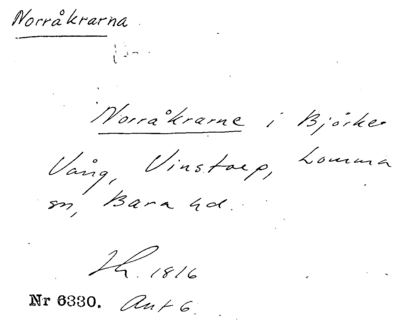 Norråkrarna
Norråkrarne i Björke
Vång, Vinstorp, Lomma
sn, Bara hd.
Zh. 1816
Nr 6330. Akt 6.